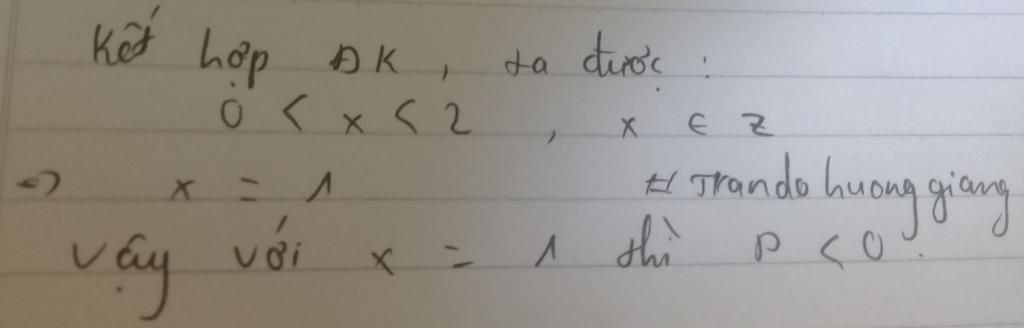 Kết hợp ĐK, ta được:
0 < x < 2, x ∈ Z
=> x = 1 # Trando huonggiang
Vậy với x = 1 thì P < 0.